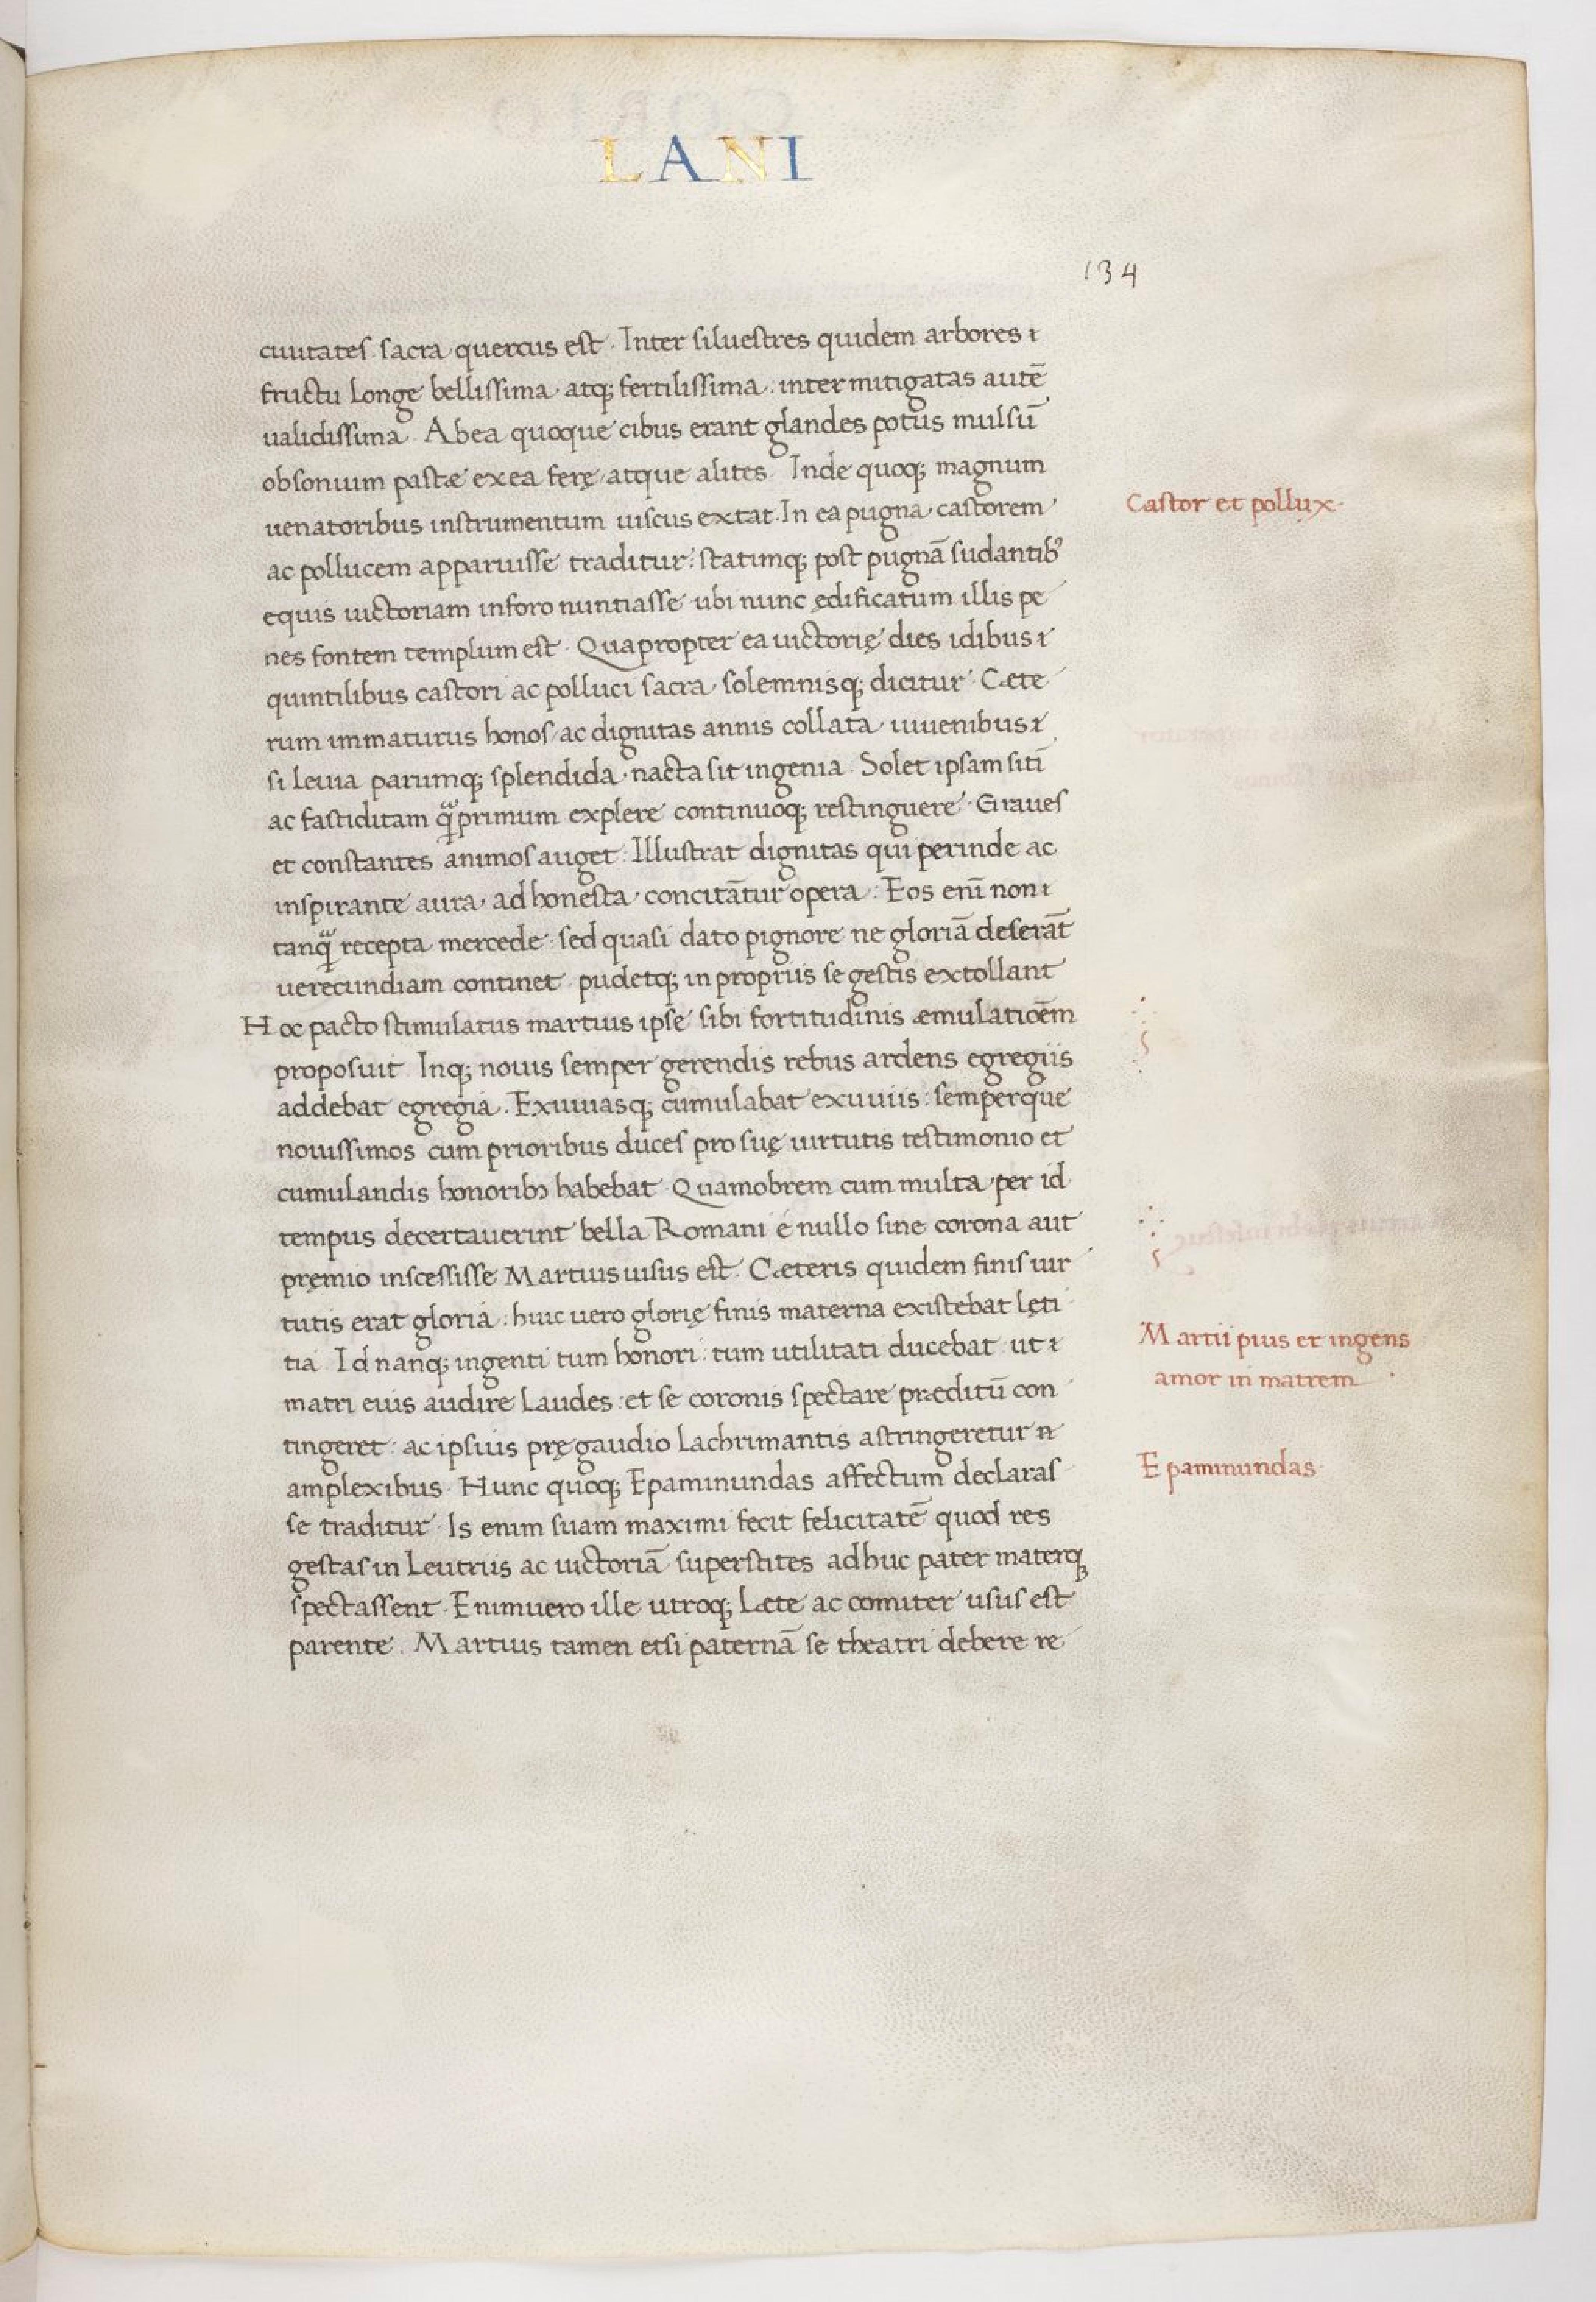 LANI
134
ciuitates sacra quercus est. Inter siluestres quidem arbores
fructu longe bellissima atq; fertilissima: inter mitigatas autē
ualidissima. Ab ea quoque cibus erant glandes potus mulsū
obsonium pastæ ex ea ferę atque alites. Inde quoq; magnum
uenatoribus instrumentum uiscus extat. In ea pugna castorem
Castor et pollux.
ac pollucem apparuisse traditur: statimq; post pugnā sudantibꝰ
equis uictoriam in foro nuntiasse ubi nunc ędificatum illis pe
nes fontem templum est. Quapropter ea uictorię dies idibus
quintilibus castori ac polluci sacra solemnisq; dicitur. Cæte
rum immaturus honos ac dignitas annis collata iuuenibus
si leuia parumq; splendida nacta sit ingenia. Solet ipsam sitī
ac fastiditam q̄primum explere continuoq; restinguere. Graues
et constantes animos auget. Illustrat dignitas qui perinde ac
inspirante aura ad honesta concitātur opera: Eos enī non
tanq̄ recepta mercede: sed quasi dato pignore ne gloriā deserāt
uerecundiam continet pudetq; in propriis se gestis extollant
Hoc pacto stimulatus martius ipse sibi fortitudinis æmulatioēm
proposuit Inq; nouis semper gerendis rebus ardens egregiis
addebat egregia. Exuuiasq; cumulabat exuuiis: semperque
nouissimos cum prioribus duces pro suę uirtutis testimonio et
cumulandis honoribꝫ habebat. Quamobrem cum multa per id
tempus decertauerint bella Romani e nullo sine corona aut
pręmio inscessisse Martius uisus est. Cæteris quidem finis uir
tutis erat gloria: huic uero glorię finis materna existebat lęti
tia Id nanq; ingenti tum honori: tum utilitati ducebat ut
Martii pius et ingens
amor in matrem
matri eius audire laudes: et se coronis spectare præditū con
tingeret: ac ipsius prę gaudio lachrimantis astringeretur
amplexibus. Hunc quoq; Epaminundas affectum declaras
Epaminundas.
se traditur. Is enim suam maximi fecit felicitatē quod res
gestas in Leutriis ac uictoriā superstites adhuc pater materq;
spectassent. Enimuero ille utroq; læte ac comiter usus est
parente. Martius tamen etsi paternā se theatri debere re